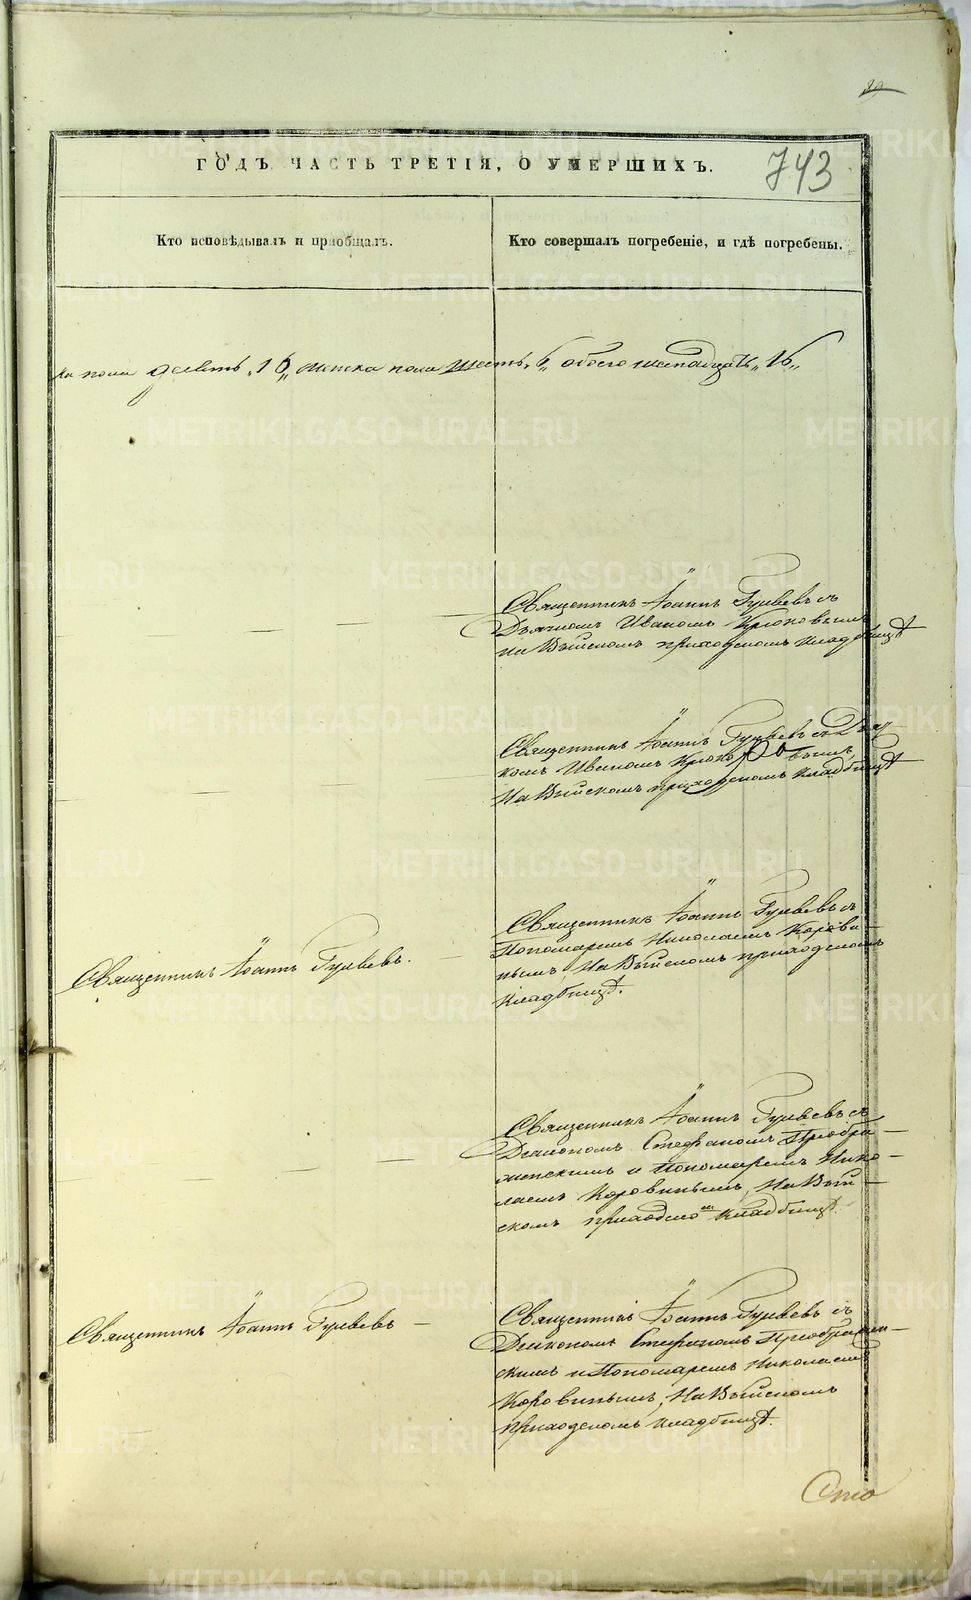 743
ГОДЪ. ЧАСТЬ ТРЕТІЯ, О УМЕРШИХЪ.
Кто исповѣдывалъ и приобщалъ.
Кто совершалъ погребеніе, и гдѣ погребены.
ка пола „10„ женска пола шесть „6„ обоего шестнадцать „16„
Священникъ Іоаннъ Гулѧевъ съ
Дьячкомъ Иваномъ Крюковымъ
на Выйскомъ приходскомъ кладбищѣ
Священникъ Іоаннъ Гуляевъ съ Дьяч
комъ Иваномъ Крюковымъ,
На Выйскомъ приходскомъ кладбищѣ
Священникъ Іоаннъ Гуляевъ.
Священникъ Іоаннъ Гуляевъ съ
Пономаремъ Николаемъ Корови-
нымъ, На Выйскомъ приходскомъ
кладбищѣ.
Священникъ Іоаннъ Гуляевъ съ
Діакономъ Стефаномъ Преобра-
женскимъ и Пономаремъ Нико-
лаемъ Коровинымъ, На Вый-
скомъ приходскомъ кладбищѣ.
Священникъ Іоаннъ Гуляевъ
Священникъ Іоаннъ Гуляевъ съ
Діакономъ Стефаномъ Преображен-
скимъ и Пономаремъ Николаемъ
Коровинымъ, На Выйскомъ
приходскомъ кладбищѣ.
METRIKI.GASO-URAL.RU